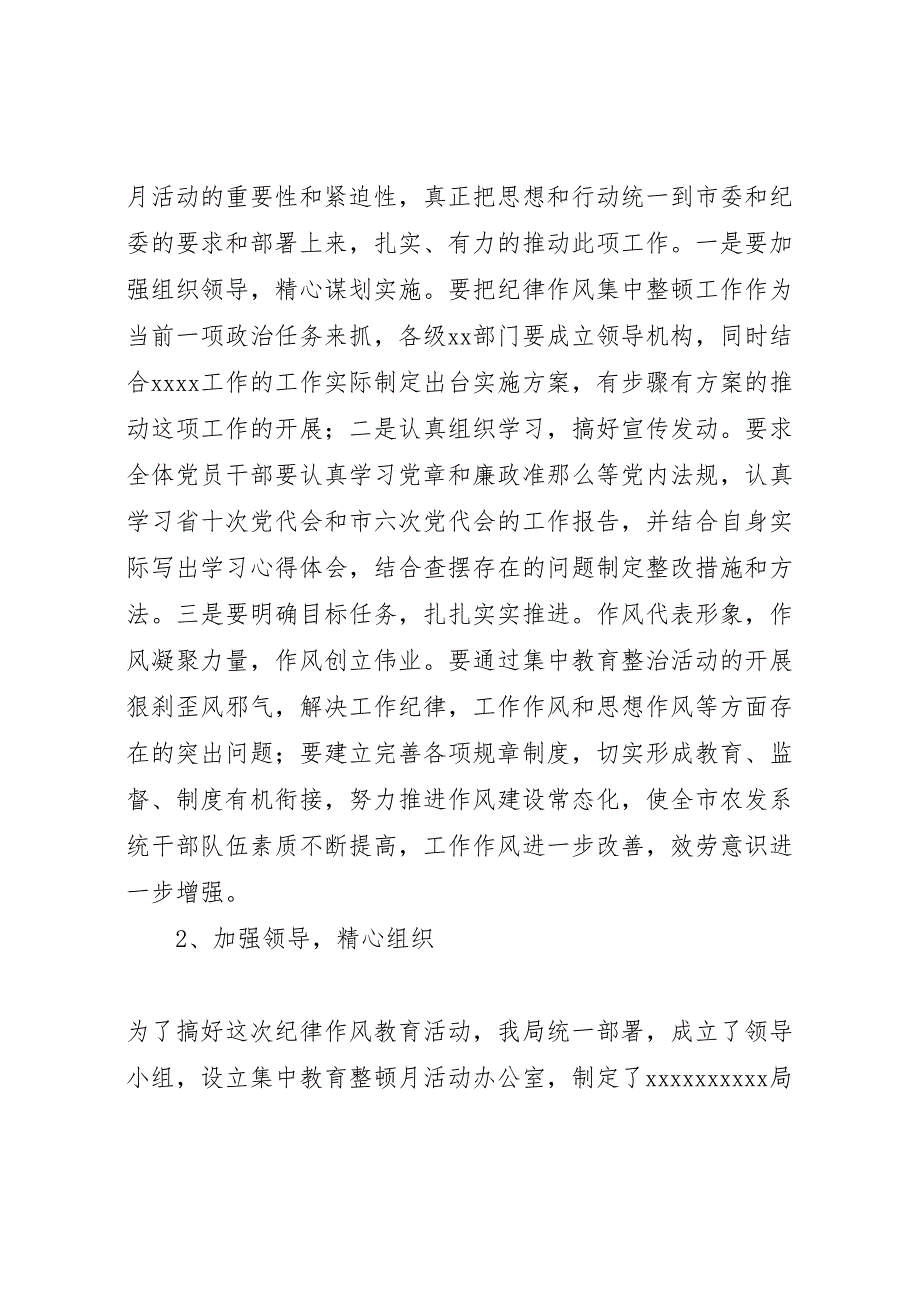 月活动的重要性和紧迫性，真正把思想和行动统一到市委和纪
委的要求和部署上来，扎实、有力的推动此项工作。一是要加
强组织领导，精心谋划实施。要把纪律作风集中整顿工作作为
当前一项政治任务来抓，各级xx部门要成立领导机构，同时结
合xxxx工作的工作实际制定出台实施方案，有步骤有方案的推
动这项工作的开展；二是认真组织学习，搞好宣传发动。要求
全体党员干部要认真学习党章和廉政准那么等党内法规，认真
学习省十次党代会和市六次党代会的工作报告，并结合自身实
际写出学习心得体会，结合查摆存在的问题制定整改措施和方
法。三是要明确目标任务，扎扎实实推进。作风代表形象，作
风凝聚力量，作风创立伟业。要通过集中教育整治活动的开展
狠刹歪风邪气，解决工作纪律，工作作风和思想作风等方面存
在的突出问题；要建立完善各项规章制度，切实形成教育、监
督、制度有机衔接，努力推进作风建设常态化，使全市农发系
统干部队伍素质不断提高，工作作风进一步改善，效劳意识进
一步增强。
2、加强领导，精心组织
为了搞好这次纪律作风教育活动，我局统一部署，成立了领导
小组，设立集中教育整顿月活动办公室，制定了xxxxxxxxxx局